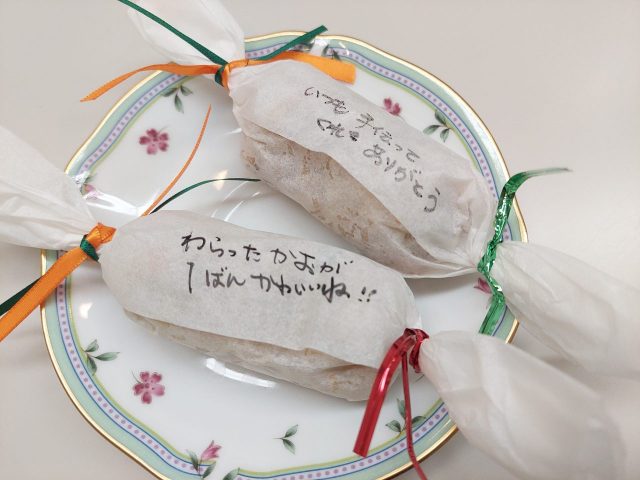 いつも 手伝って
くれて
ありがとう
わらった かおが
1ばん かわいいね!!